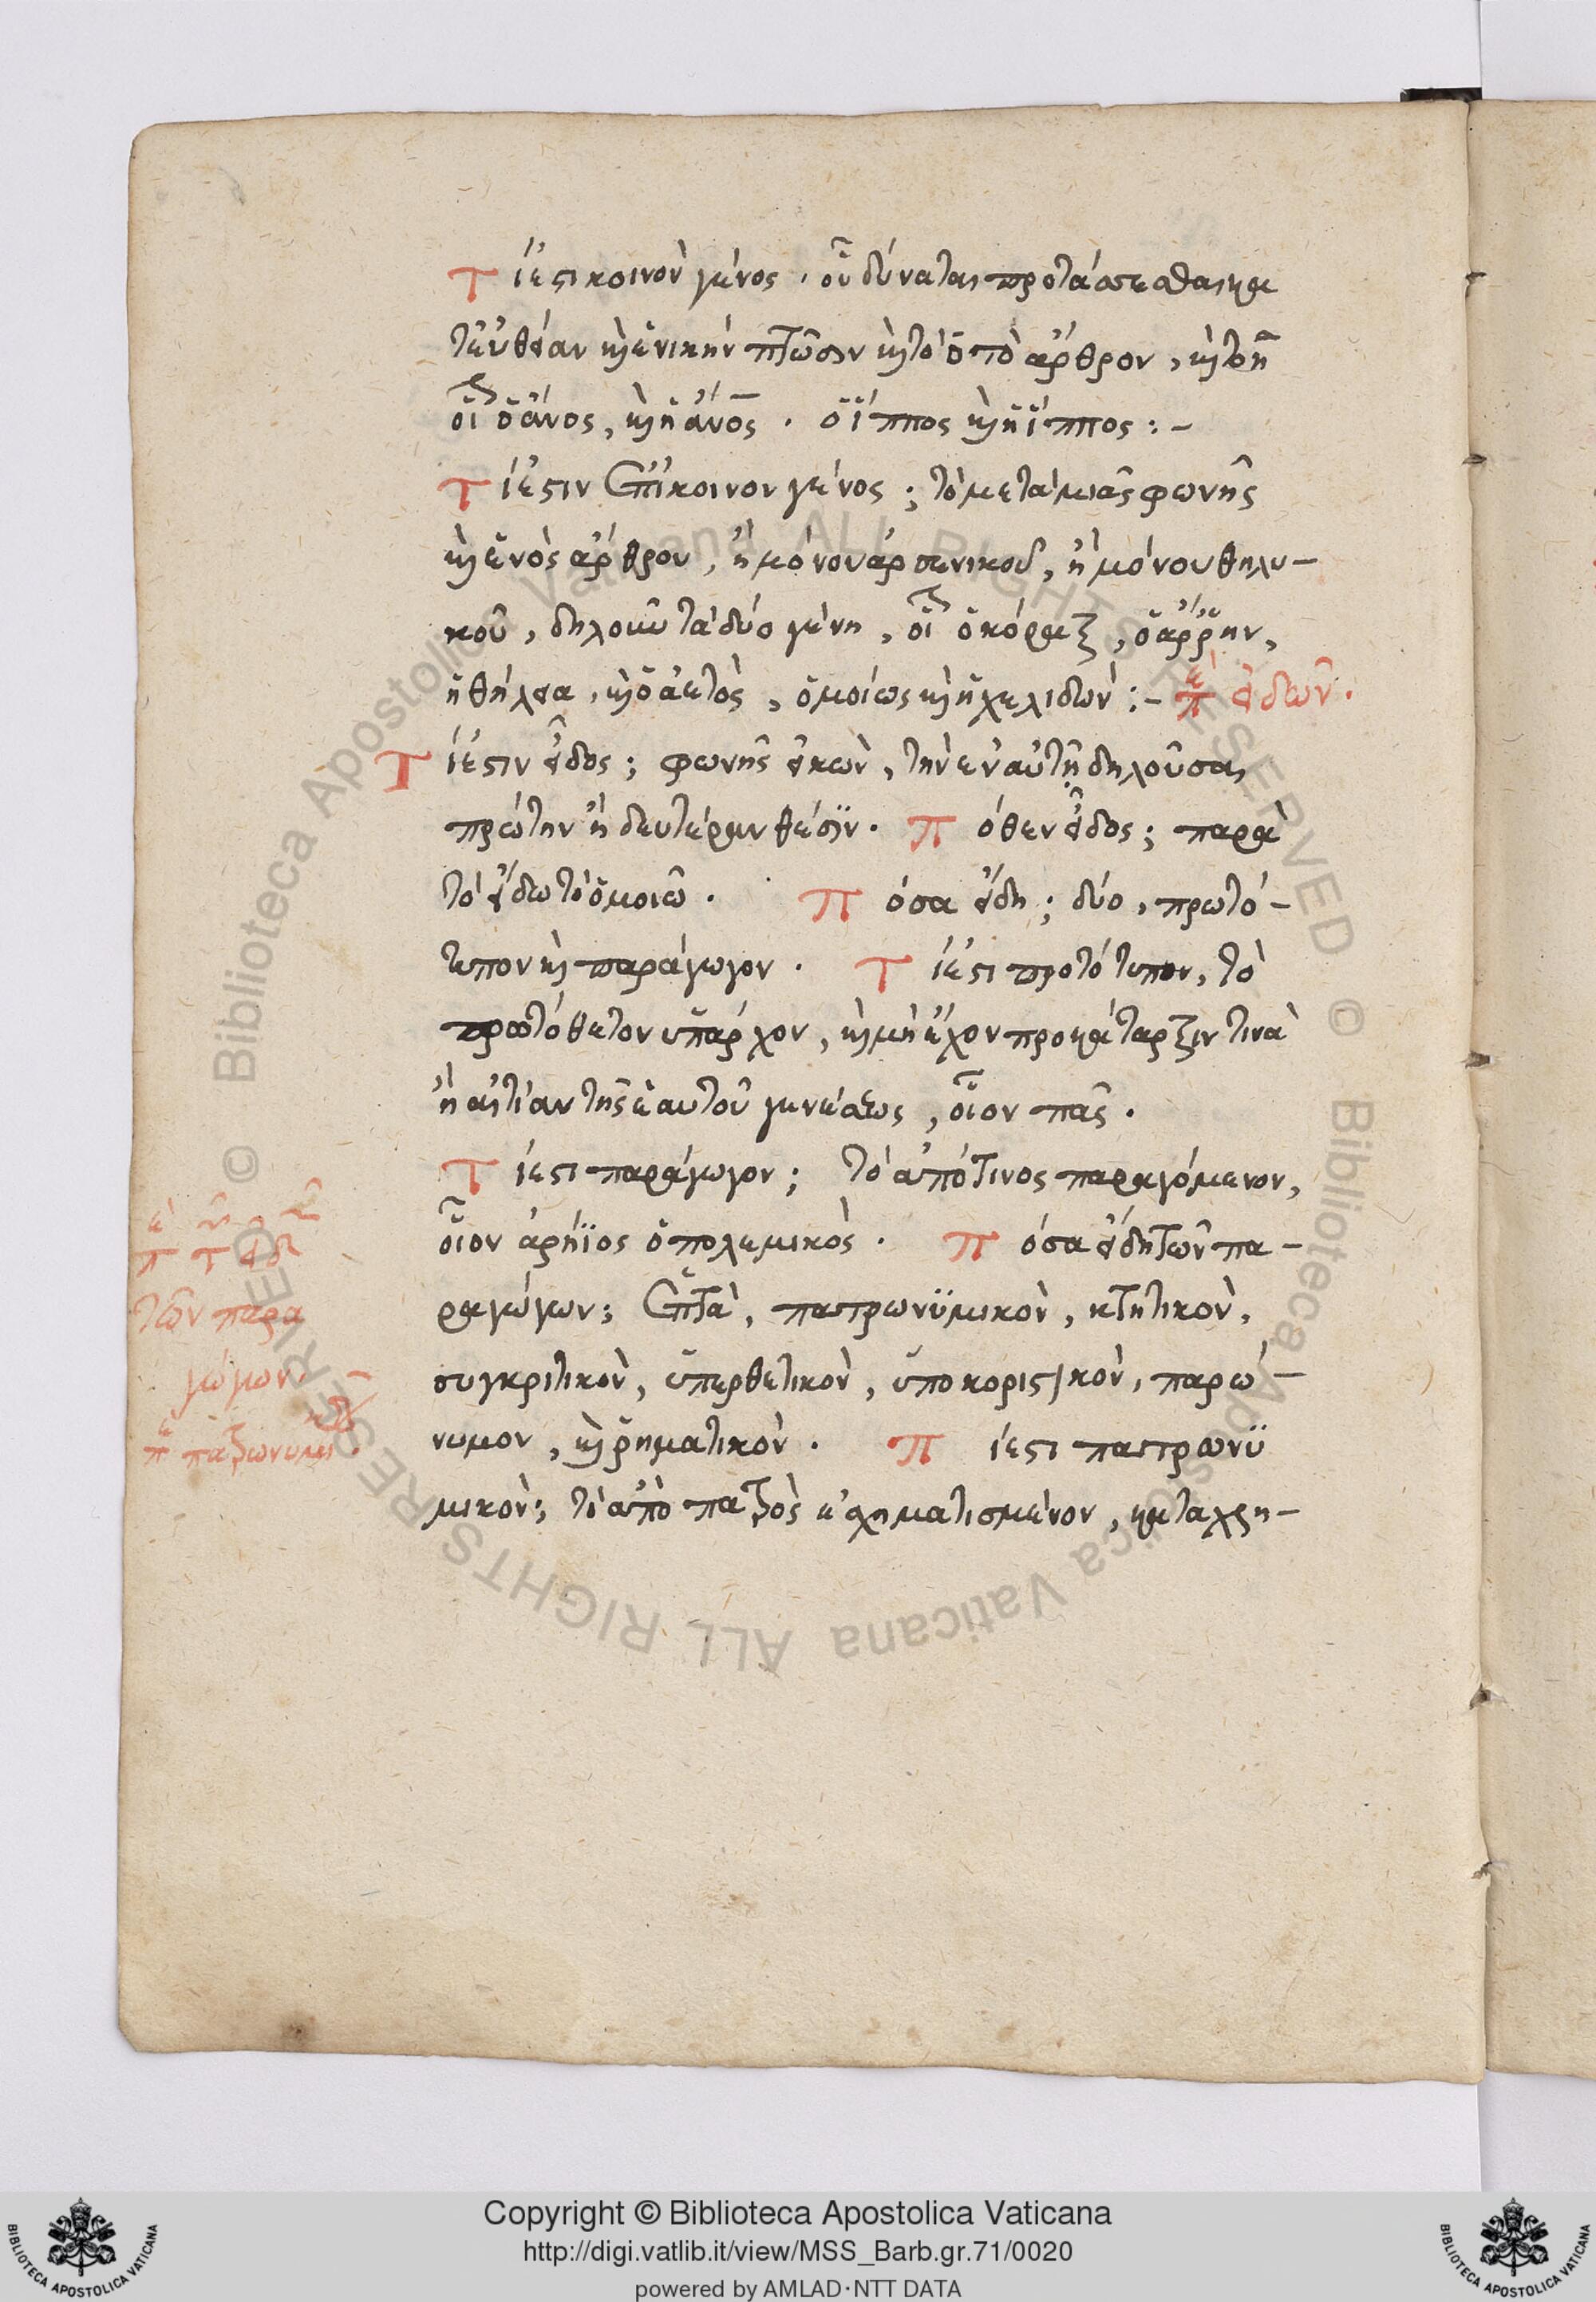 Τ ίἐστι κοινὸν γένος · οὗ δύναται προτάσσεσθαι κα
τ' εὐθεῖαν καὶ ἑνικὴν πτῶσιν καὶ τὸ ὁ τὸ ἄρθρον, καὶ τὸ ἡ
οἷ ὁ ἄνος, καὶ ἡ ἄνος · ὁ ἵππος καὶ ἡ ἵππος :-
Τ ί ἐστιν ἐπίκοινον γένος ; τὸ μετὰ μιᾶς φωνῆς
καὶ ἑνὸς ἄρθρου, ἢ μόνου ἀρσενικοῦ, ἢ μόνου θηλυ-
κοῦ, δηλοῦν τὰ δύο γένη, οἷ ὁ κόραξ, ὁ ἄρρην,
ἡ θήλεια, καὶ ὁ ἀετὸς, ὁμοίως καὶ ἡ χελιδών :- πε εἰδῶν.
Τ ί ἐστιν εἶδος ; φωνῆς εἰκὼν, τὴν ἐν αὐτῇ δηλοῦσα
πρώτην ἢ δευτέραν θέσϊν. Π όθεν εἶδος ; παρὰ
τὸ εἴδω τὸ ὁμοιῶ. Π όσα εἴδη ; δύο, πρωτό-
τυπον καὶ παράγωγον. Τ ί ἐστι προτότυπον, τὸ
πρωτόθετον ὑπάρχον, καὶ μὴ ἔχον προκάταρξιν τινὰ
ἢ αἰτίαν τῆς ἑαυτοῦ γενέσεως, οἷον πᾶς.
Τ ί ἐστι παράγωγον ; τὸ ἀπό τινος παραγόμενον,
οἷον ἀρήϊος ὁ πολεμικὸς. Π όσα εἴδη τῶν πα-
ραγώγων ; ἑπτὰ, πατρωνϋμικὸν, κτητικὸν,
συγκριτικὸν, ὑπερθετικὸν, ὑποκοριστικὸν, παρώ-
νυμον, καὶ ῥηματικὸν. Π ί ἐστι πατρωνϋ
μικὸν ; τὸ ἀπὸ πατρὸς ἐσχηματισμένον, καταχρη-
πε τ εἰδ
τῶν παρα
γώγων.
πε πατρωνυμικ.
Copyright © Biblioteca Apostolica Vaticana
http://digi.vatlib.it/view/MSS_Barb.gr.71/0020
powered by AMLAD·NTT DATA
© Biblioteca Apostolica Vaticana ALL RIGHTS RESERVED © Biblioteca Apostolica Vaticana ALL RIGHTS RESERVED
BIBLIOTECA APOSTOLICA VATICANA
BIBLIOTECA APOSTOLICA VATICANA